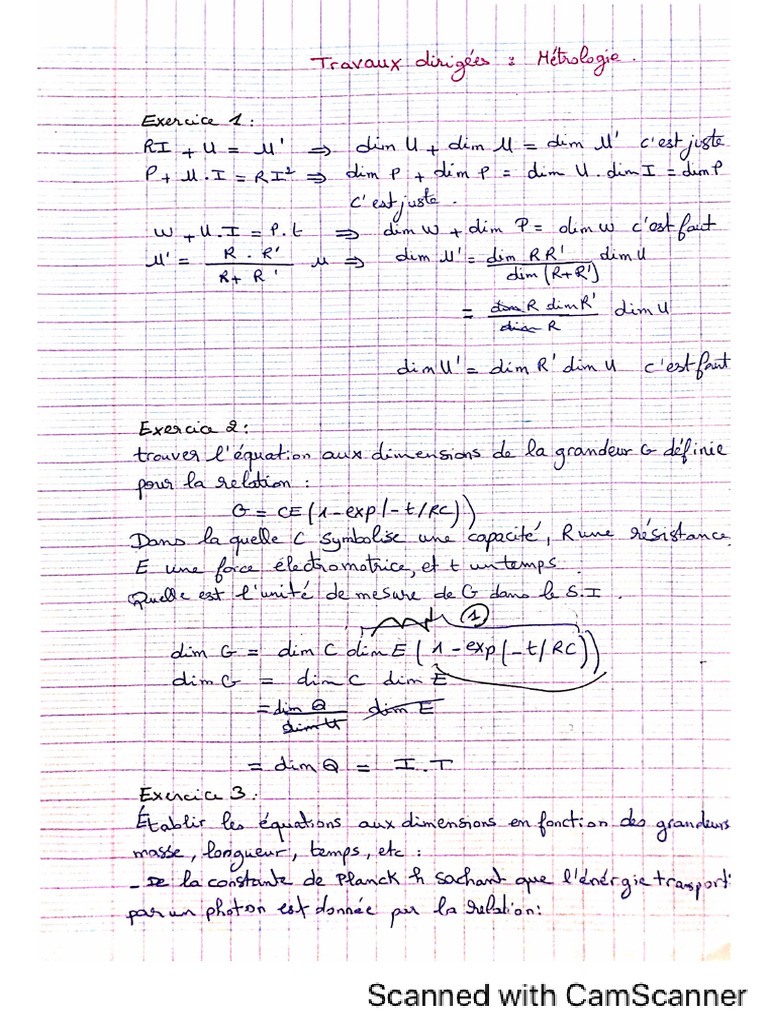 Travaux dirigées : Métrologie.
Exercice 1 :
RI + U = U' ⇒ dim U + dim U = dim U' c'est juste
P + U.I = RI² ⇒ dim P + dim P = dim U. dim I = dim P
c'est juste.
W + U.I = P.t ⇒ dim W + dim P = dim W c'est faut
U' = R . R' / R + R' U ⇒ dim U' = dim RR' / dim (R+R') dim U
= dim R dim R' / dim R dim U
dim U' = dim R' dim U c'est faut
Exercice 2 :
trouver l'équation aux dimensions de la grandeur G définie
pour la relation :
G = CE (1 - exp (-t/RC))
Dans la quelle C symbolise une capacité, R une résistance
E une force électromotrice, et t un temps.
Quelle est l'unité de mesure de G dans le S.I.
1
dim G = dim C dim E (1 - exp (-t/RC))
dim G = dim C dim E
= dim Q / dim U dim E
= dim Q = I.T
Exercice 3 :
Établir les équations aux dimensions en fonction des grandeurs
masse, longueur, temps, etc :
- De la constante de Planck h sachant que l'énérgie trasport
par un photon est donnée par la relation:
Scanned with CamScanner